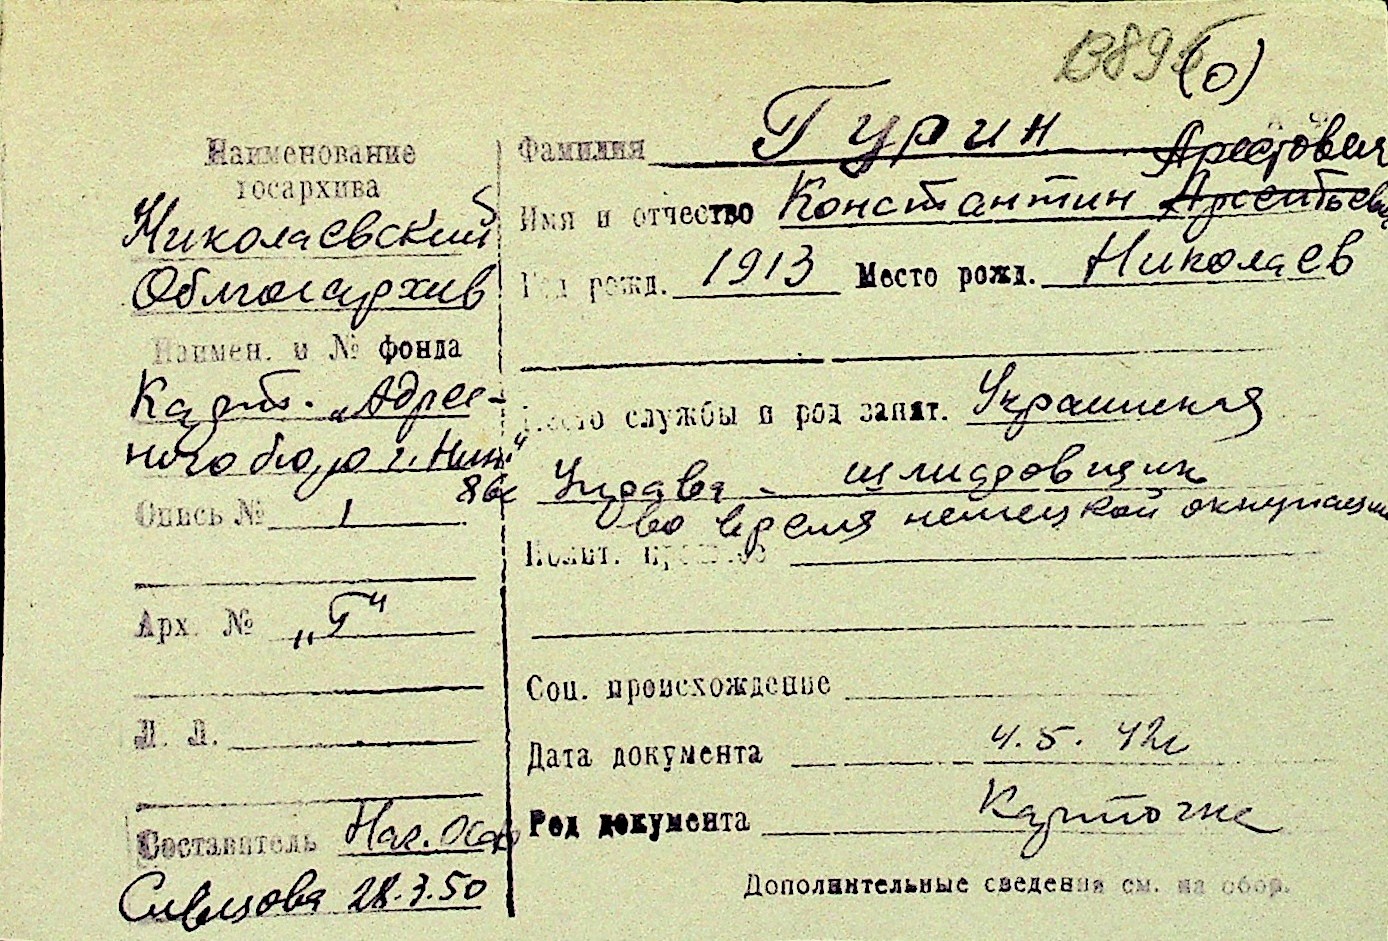 (о)
Наименование
госархива
Николаевский
Облгосархив
Наимен. и № фонда
Карт. „Адрес-
ного бюро г. Ник"
Опись № 1
Арх. № „Г"
Л. Л.
Составитель Нач. ОСО
28.3.50
Фамилия Гурин
Арестович
Имя и отчество Константин Арсентьевич
Год рожд. 1913 Место рожд. Николаев
Место службы и род занят. Украинская
Управа -
во время немецкой оккупации
Полит. прошлое
Соц. происхождение
Дата документа 4.5.42г
Род документа Карточка
Дополнительные сведения см. на обор.